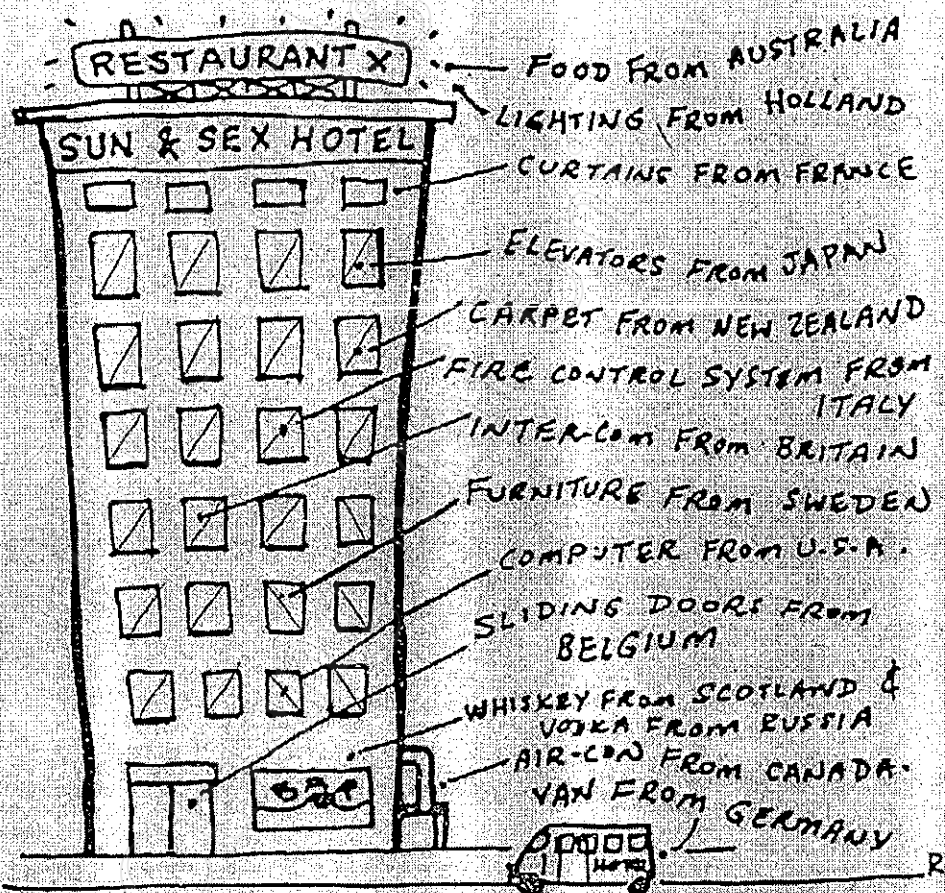 RESTAURANT X
SUN & SEX HOTEL
FOOD FROM AUSTRALIA
LIGHTING FROM HOLLAND
CURTAINS FROM FRANCE
ELEVATORS FROM JAPAN
CARPET FROM NEW ZEALAND
FIRE CONTROL SYSTEM FROM
ITALY
INTER-COM FROM BRITAIN
FURNITURE FROM SWEDEN
COMPUTER FROM U.S.A.
SLIDING DOORS FROM
BELGIUM
WHISKEY FROM SCOTLAND &
VODKA FROM RUSSIA
AIR-CON FROM CANADA.
VAN FROM
GERMANY
HOTEL
R